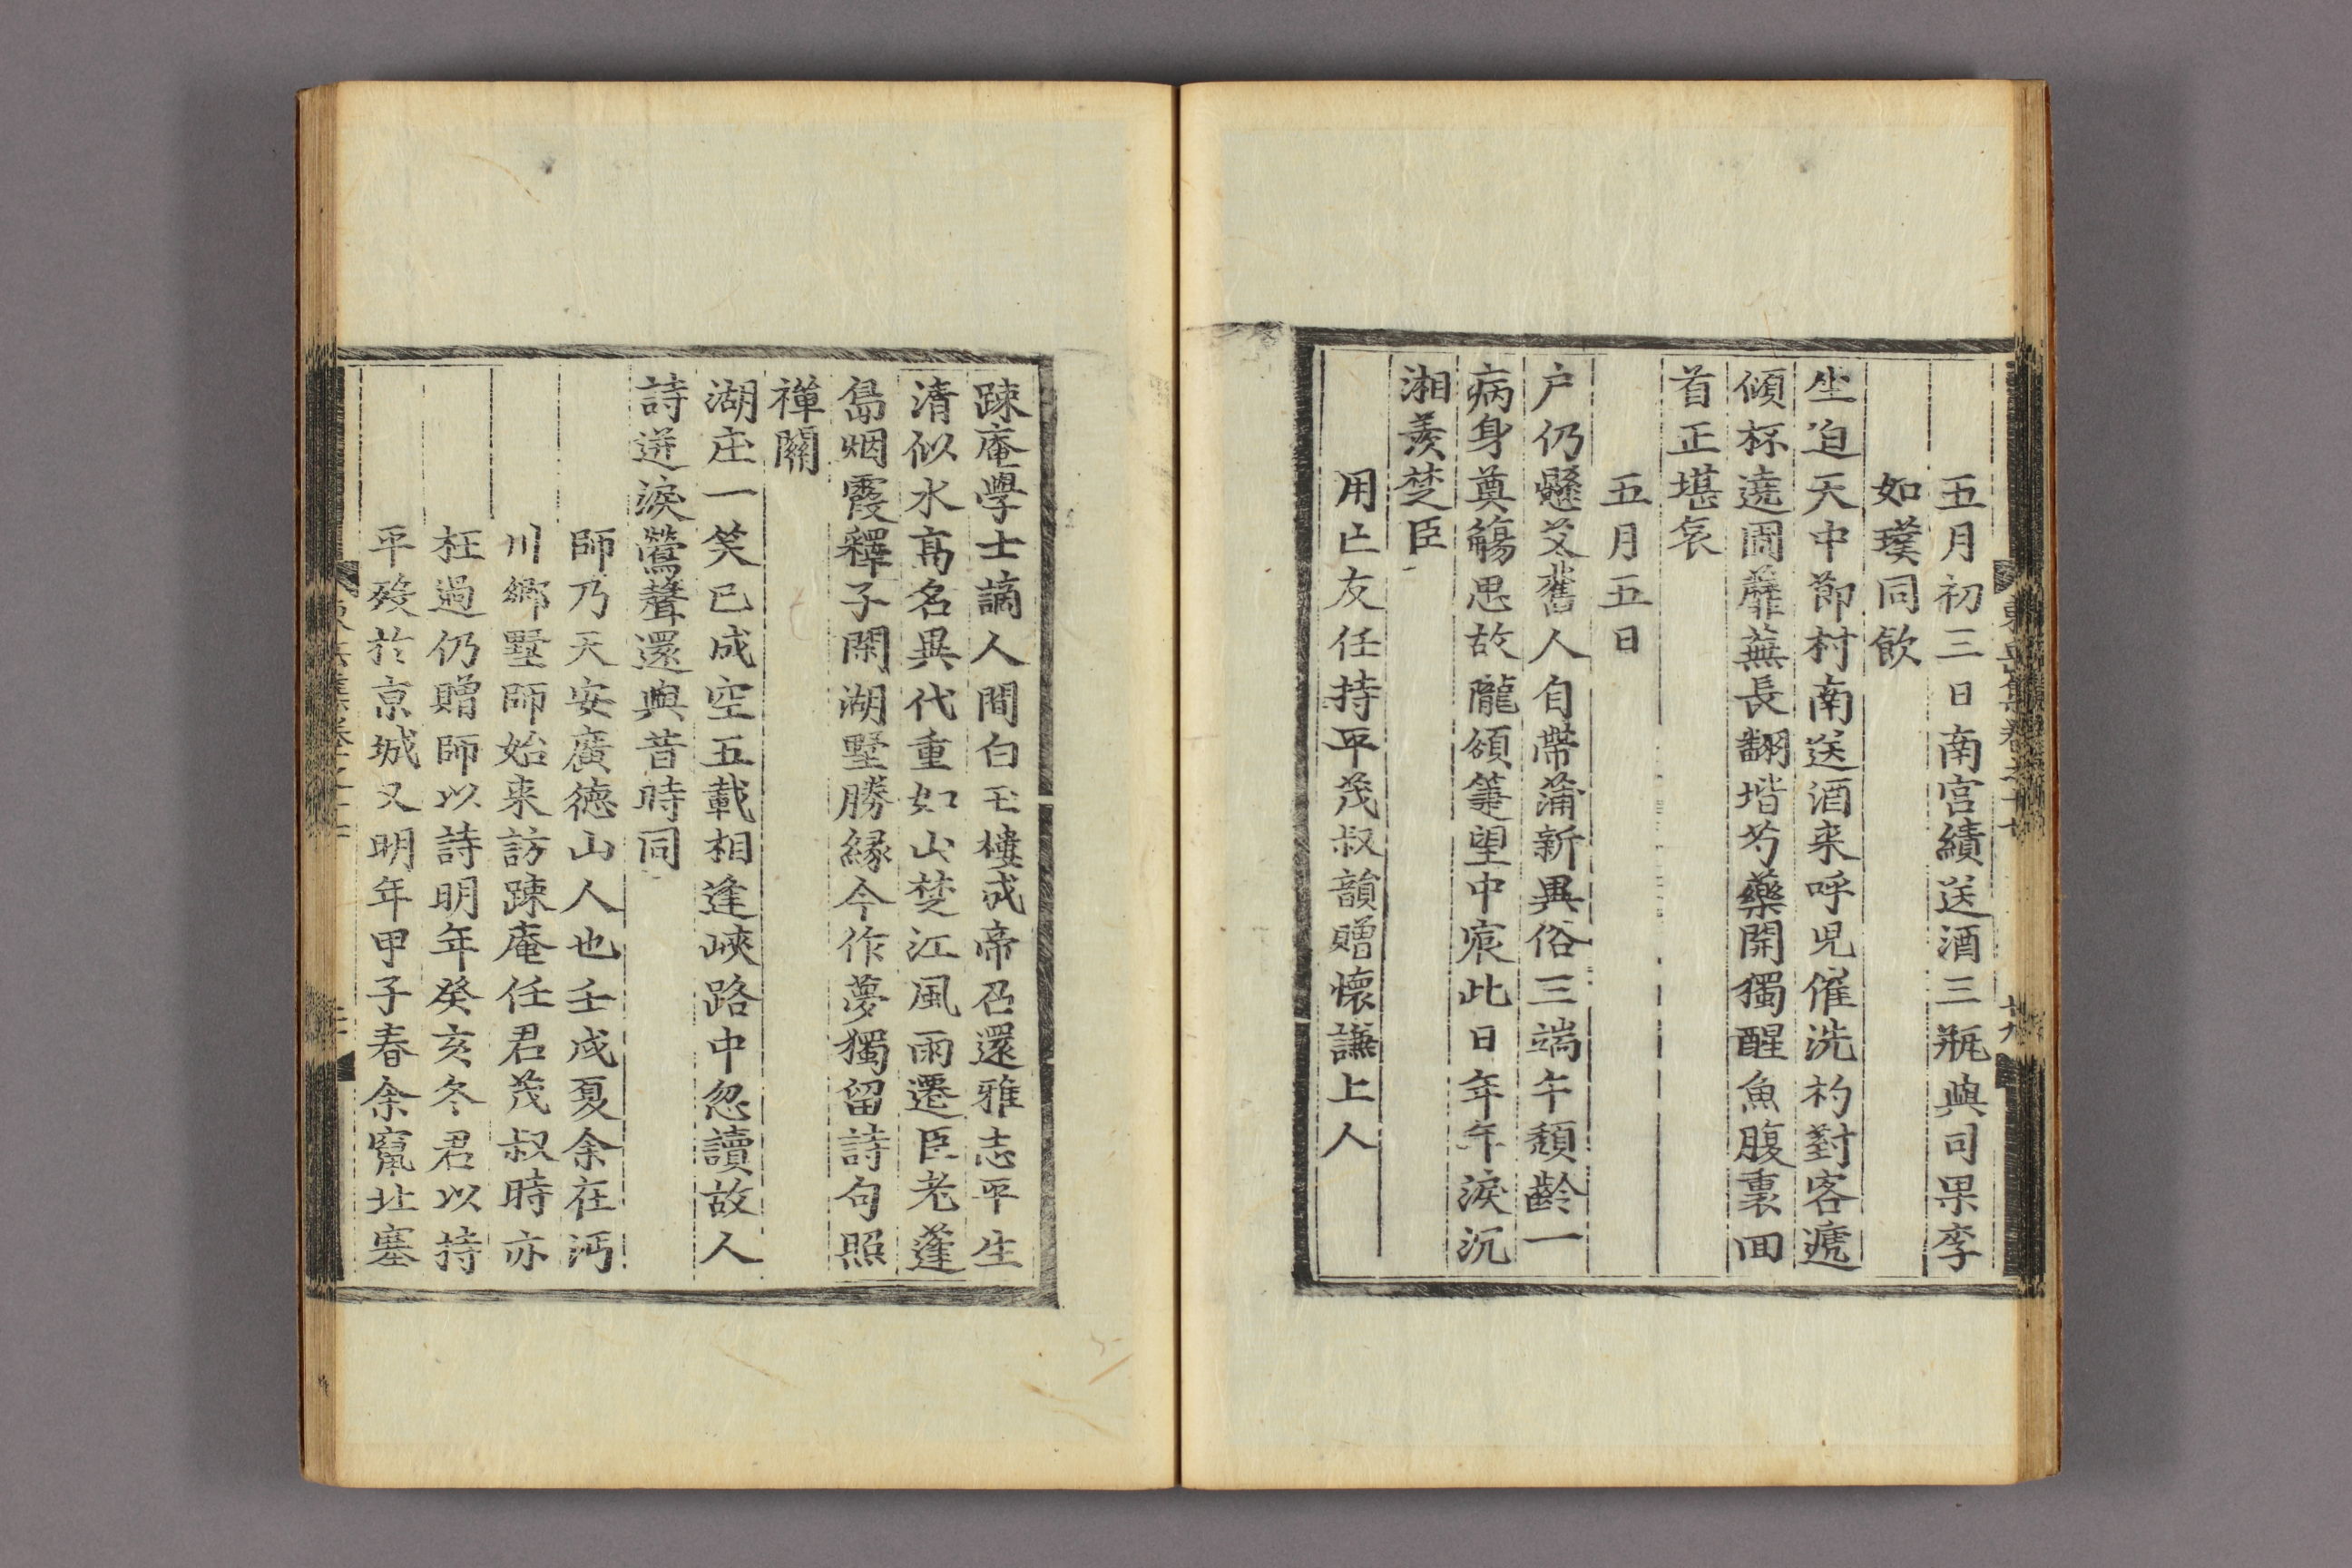 五月初三日南宮績送酒三瓶與司果李
如璞同飮
坐迫天中節村南送酒来呼児催洗杓對客遞
傾杯遶圃蘼蕪長翻堦芍藥開獨醒魚腹裏回
首正堪哀
五月五日
户仍懸艾舊人自帶蒲新異俗三端午頽齡一
病身奠觴思故隴頒箑望中宸此日年年淚沉
湘羨楚臣
用亡友任持平茂叔韻贈懷謙上人
踈庵學士謫人間白玉樓成帝召還雅志平生
清似水高名異代重如山楚江風雨遷臣老蓬
島烟霞釋子閑湖墅勝緣今作夢獨留詩句照
禪關
湖庄一笑已成空五載相逢峽路中忽讀故人
詩迸淚鶯聲還與昔時同
師乃天安廣德山人也壬戌夏余在沔
川鄉墅師始来訪踈庵任君茂叔時亦
枉過仍贈師以詩明年癸亥冬君以持
平歿於京城又明年甲子春余竄北塞